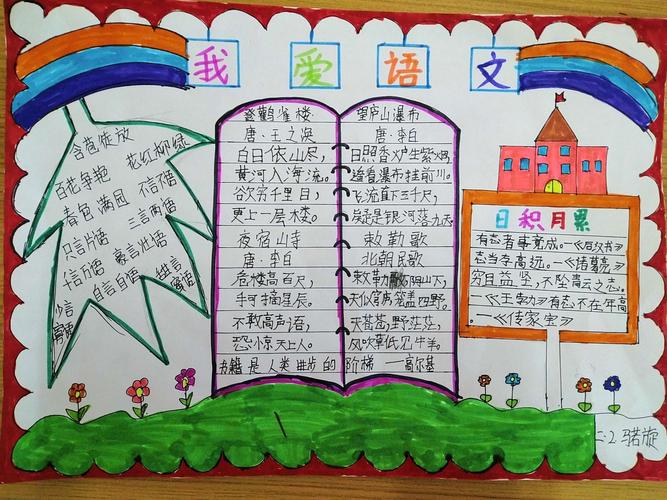 我爱语文
含苞绽放
花红柳绿
百花争艳
春色满园
三言两语
只言片语
千言万语
豪言壮语
自言自语
甜言蜜语
少言寡语
登鹳雀楼
唐·王之涣
白日依山尽，
黄河入海流。
欲穷千里目，
更上一层楼。
夜宿山寺
唐·李白
危楼高百尺，
手可摘星辰。
不敢高声语，
恐惊天上人。
望庐山瀑布
唐·李白
日照香炉生紫烟，
遥看瀑布挂前川。
飞流直下三千尺，
疑是银河落九天。
敕勒歌
北朝民歌
敕勒川阴山下，
天似穹庐笼盖四野。
天苍苍，野茫茫，
风吹草低见牛羊。
书籍是人类进步的阶梯 —高尔基
日积月累
有志者事竟成。—《后汉书》
志当存高远。—《诸葛亮》
穷且益坚，不坠青云之志。
—《王勃》有志不在年高
—《传家宝》
二.2